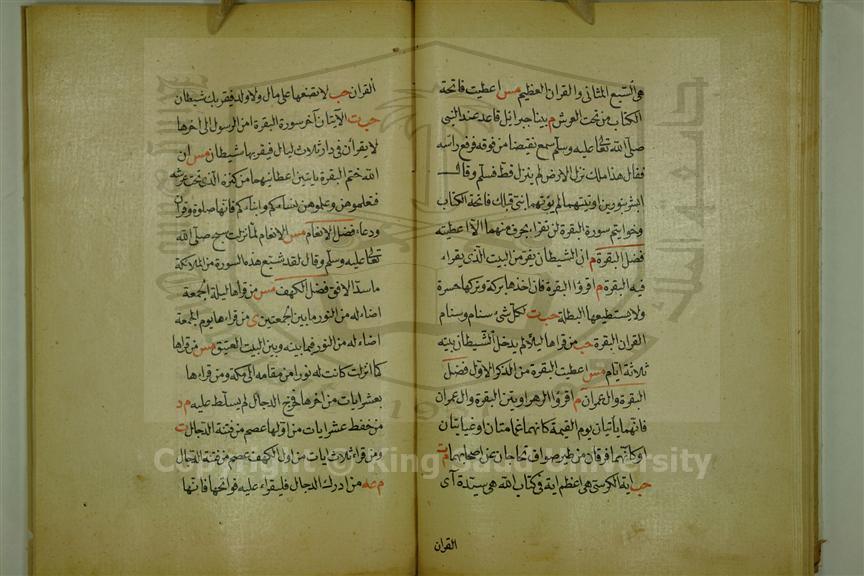 هى السبع المثانى والقران العظيم مس اعطيت فاتحة
الكتاب من تحت العرش م بينا جبرائيل قاعد عند النبى
صلى الله تعالى عليه وسلم سمع نقيضا من فوقه فرفع راسه
فقال هذا ملك نزل الارض لم ينزل قط فسلم وقال
ابشر بنورين اوتيتهما لم يؤتهما نبى قبلك فاتحة الكتاب
وخواتيم سورة البقرة لن تقرا بحرف منهما الا اعطيته
فضل البقرة م ان الشيطان يفر من البيت الذى يقراء
فيه البقرة م اقرؤا البقرة فان اخذها بركة وتركها حسرة
ولا يستطيعها البطلة حب ت لكل شئ سنام وسنام
القران البقرة حب من قراها ليلا لم يدخل الشيطان بيته
ثلاثة ايام مس اعطيت البقرة من الذكر الاول فضل
البقرة وال عمران م اقرؤا الزهراوين البقرة وال عمران
فانهما ياتيان يوم القيمة كانهما غمامتان او غيايتان
او كانهما فرقان من طير صواف تحاجان عن اصحابهما م ت
حب اية الكرسى هى اعظم اية فى كتاب الله هى سيدة آى
القران
القران حب لا تضعها على مال ولا ولد فيقربك شيطان
حب ت الآيتان آخر سورة البقرة امن الرسول الى اخرها
لا يقران فى دار ثلاث ليال فيقربها شيطان مس ان
الله ختم البقرة بايتين اعطانيهما من كنزه الذى تحت عرشه
فتعلموهن وعلموهن نساءكم وابناءكم فانها صلوة وقران
ودعاء فضل الانعام مس الانعام لما نزلت سبح صلى الله
تعالى عليه وسلم وقال لقد شيع هذه السورة من الملائكة
ما سد الافق فضل الكهف مس من قراها ليلة الجمعة
اضاء له من النور ما بين الجمعتين ى من قراءها يوم الجمعة
اضاء له من النور فيما بينه وبين البيت العتيق مس من قراها
كما انزلت كانت له نورا من مقامه الى مكة ومن قراءها
بعشر ايات من اخرها فخرج الدجال لم يسلط عليه م د
من حفظ عشر ايات من اولها عصم من فتنة الدجال ت
ومن قراء ثلاث ايات من اول الكهف عصم من فتنة الدجال
م عه من ادرك الدجال فليقراء عليه فواتحها فانها
Copyright © King Saud University